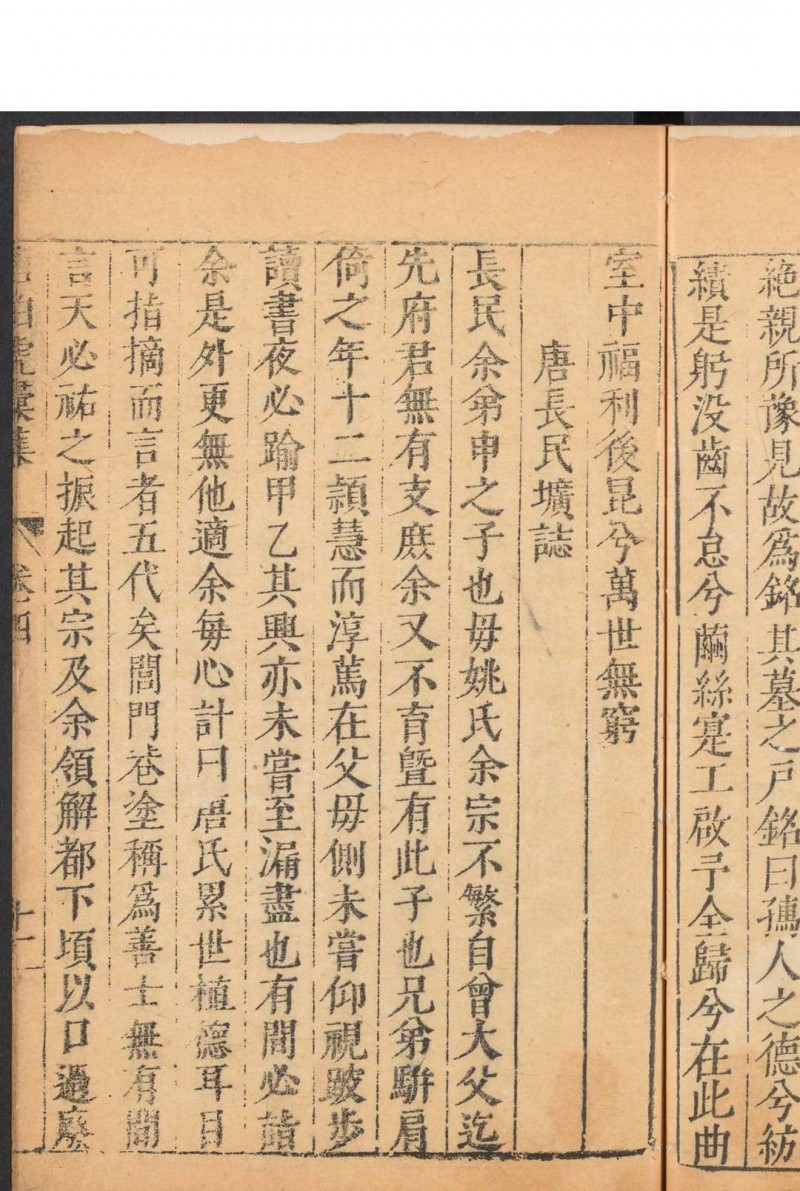 絶親所豫見故爲銘其墓之戸銘曰孺人之德兮紡
績是躬没齒不怠兮繭絲寔工啟予全歸兮在此曲
室中福利後昆兮萬世無窮
唐長民壙誌
長民余弟申之子也毋姚氏余宗不繁自曾大父迄
先府君無有支庶余又不育曁有此子也兄弟駢肩
倚之年十二頴慧而淳篤在父毋側未嘗仰視跛步
讀書夜必踰甲乙其興亦未嘗至漏盡也有間必詣
余是外更無他適余每心計曰唐氏累世植德耳目
可指摘而言者五代矣閭門巷塗稱爲善士無有間
言天必祐之振起其宗及余領解都下頃以口過廢
伯虎彙集 卷四 十一